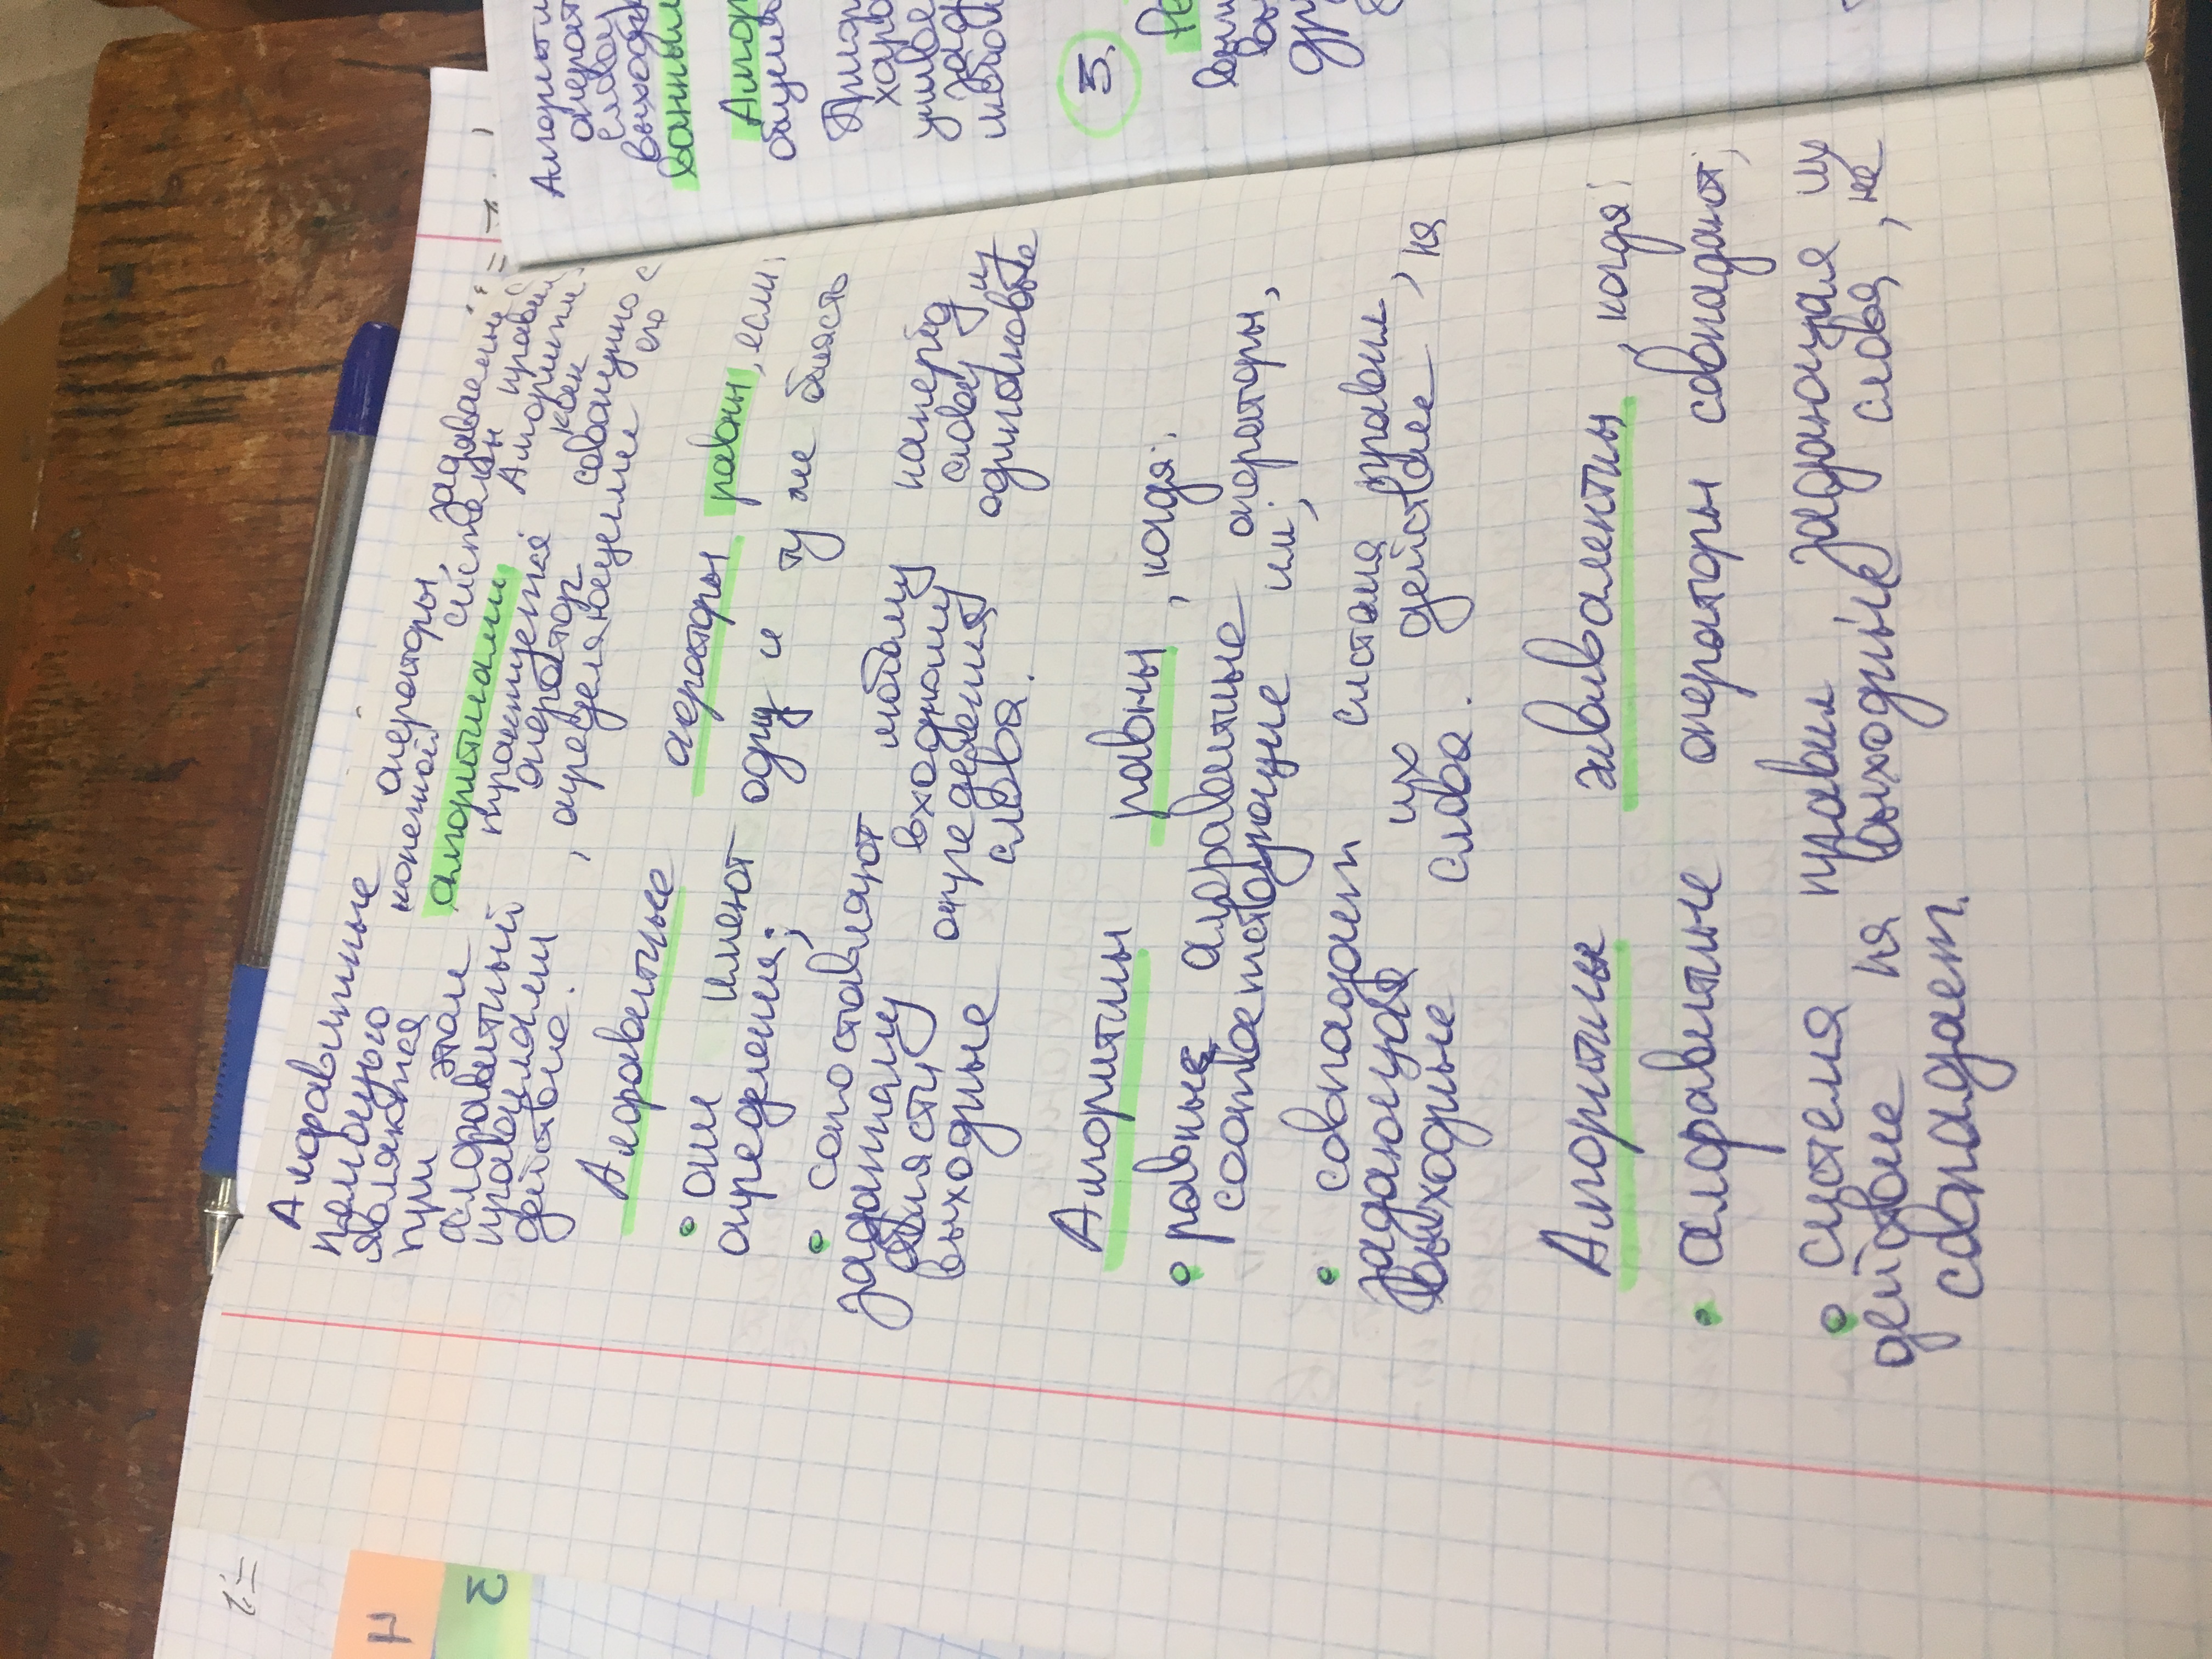 Алфавитные операторы, задаваемые с
помощью конечной системы правил
являются алгоритмами. Алгоритм
при этом трактуется как
алфавитный оператор совокупно с
правилами, определяющими его
действие.
Алфавитные операторы равны, если:
• они имеют одну и ту же область
определения;
• сопоставляют любому наперёд
заданному входному слову из
области определения одинаковые
выходные слова.
Алгоритмы равны, когда:
• равные алфавитные операторы,
соответствующие им;
• совпадает система правил,
задающая их действие на
выходные слова.
Алгоритмы эквивалентны, когда:
• алфавитные операторы совпадают;
• система правил, задающая их
действие на выходные слова, не
совпадает.
3
Алгоритм
операт
слову
выходн
ванным
Алгор
общи
хара
униве
зад
любом
5.
др